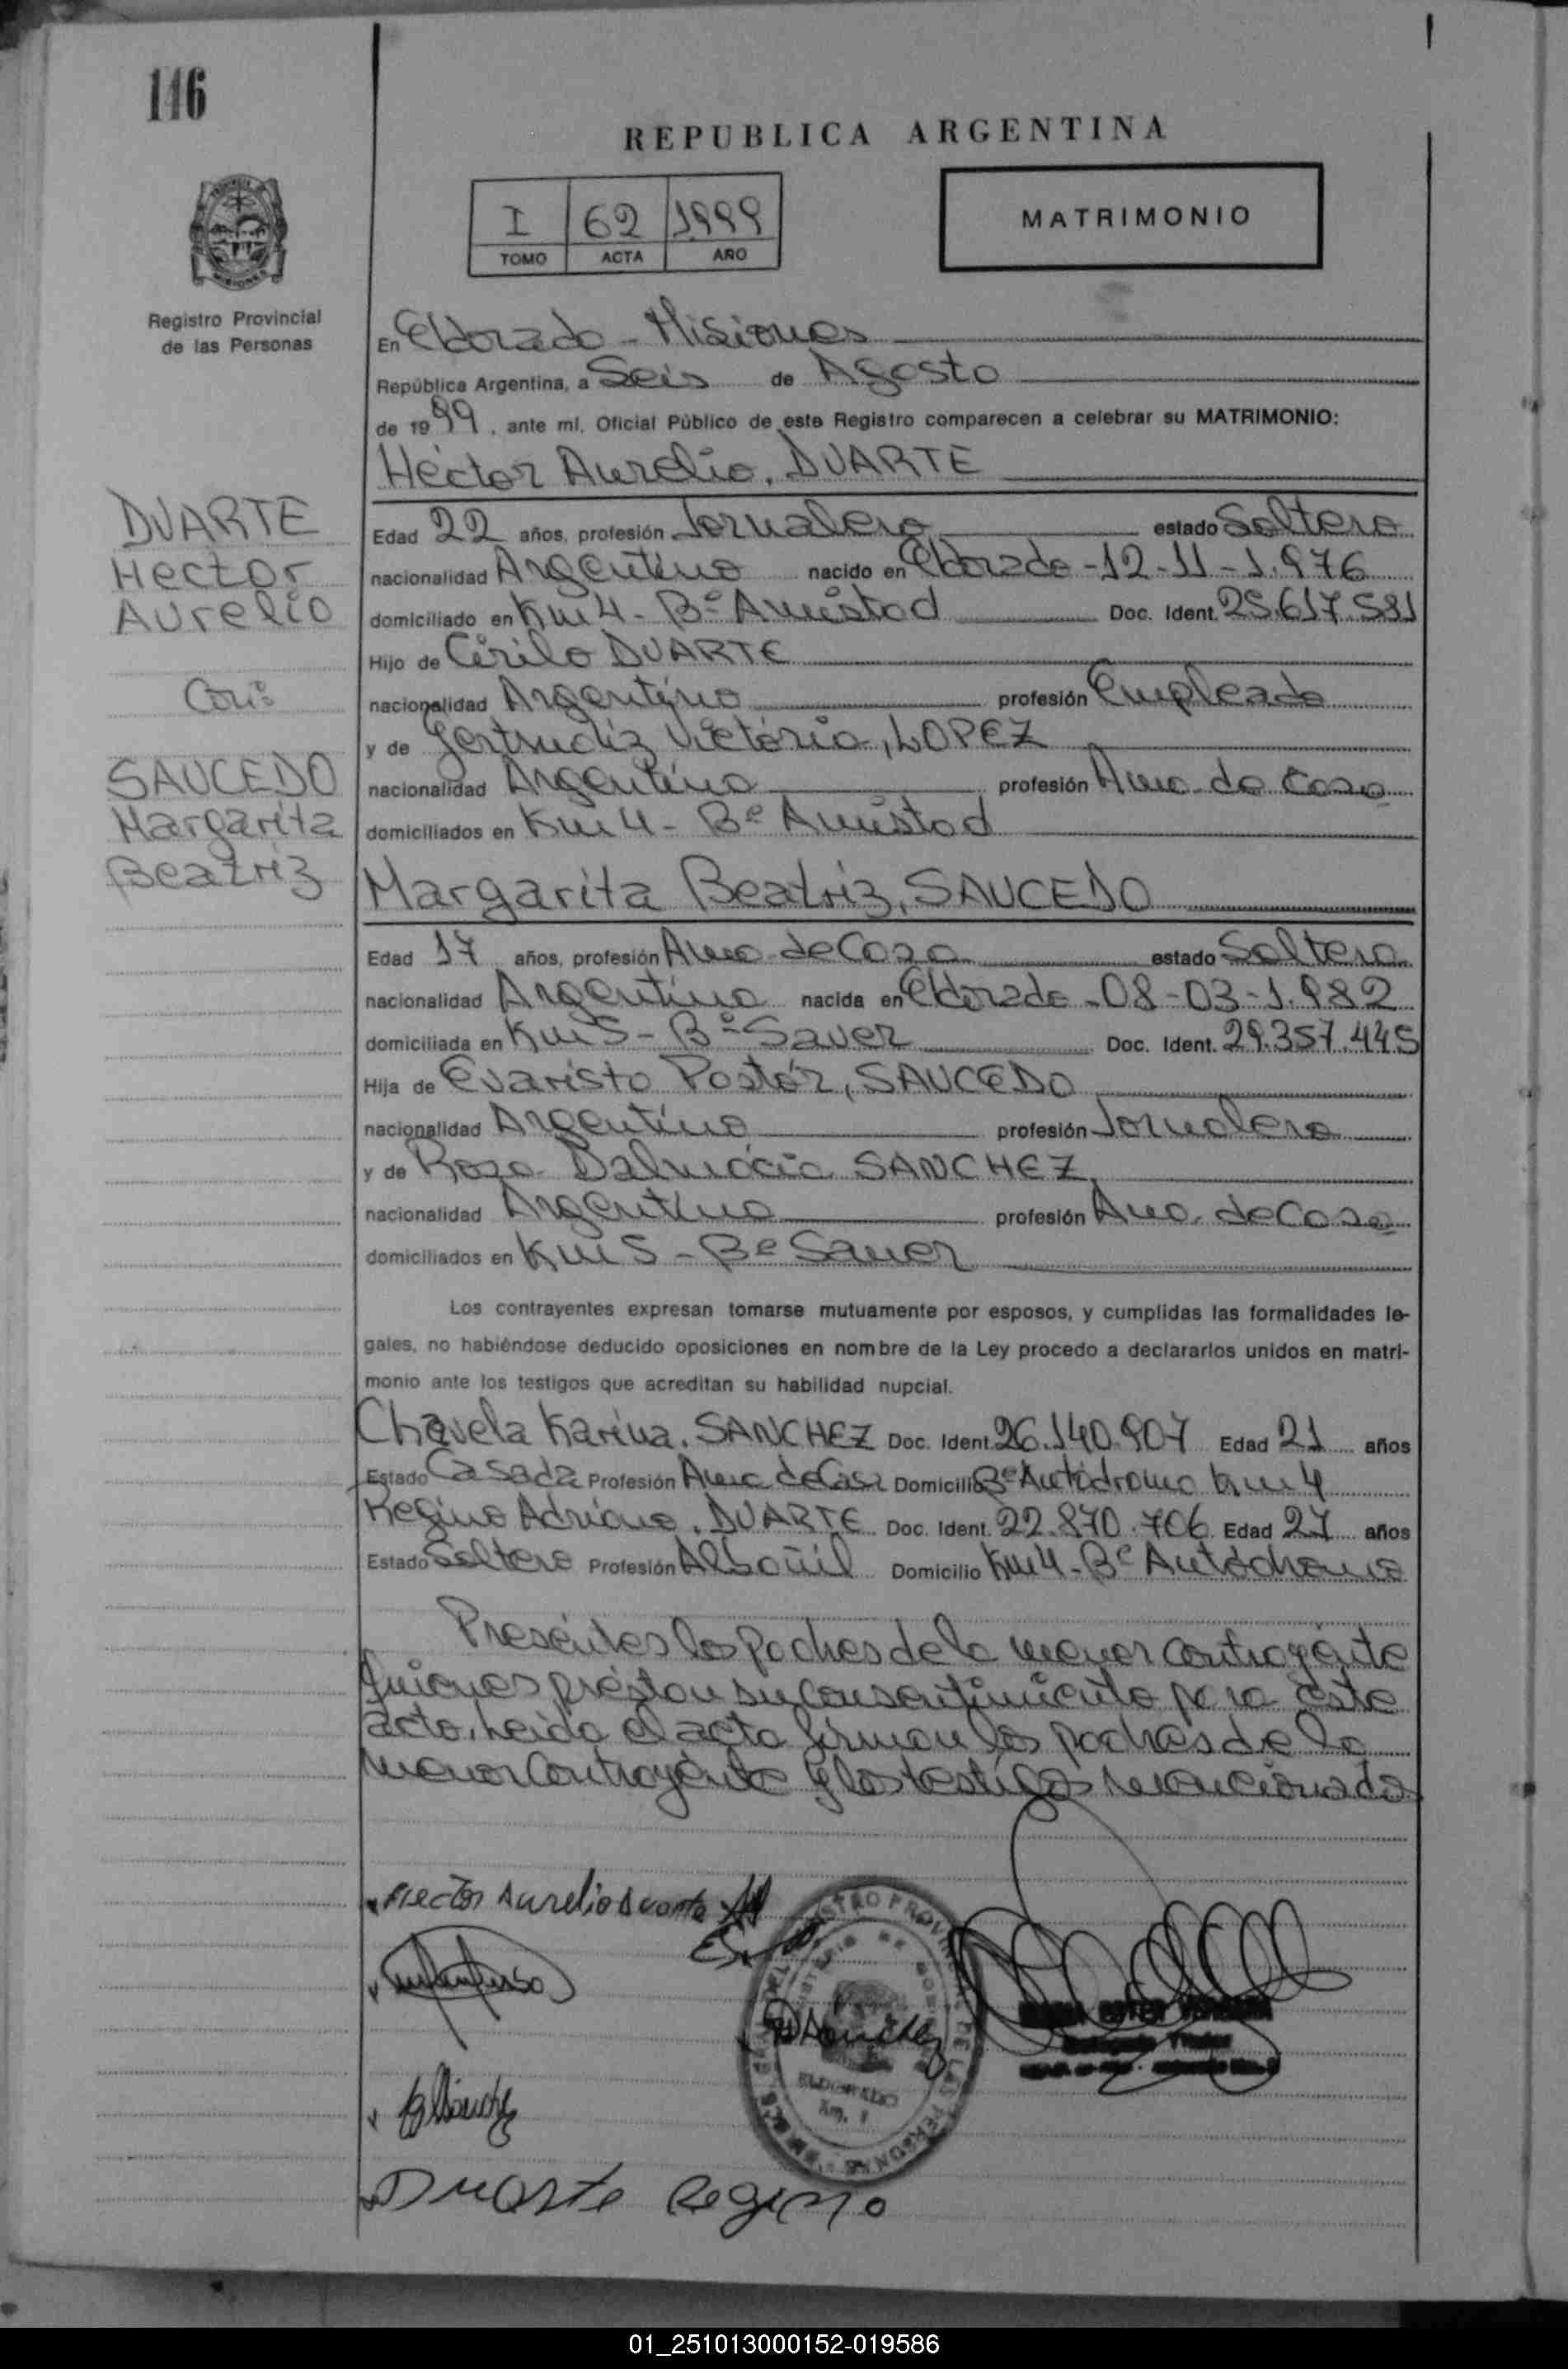 116
REPUBLICA ARGENTINA
I 62 1999
TOMO ACTA AÑO
MATRIMONIO
Registro Provincial
de las Personas
En Eldorado - Misiones
República Argentina, a Seis de Agosto
de 1999, ante mí, Oficial Público de este Registro comparecen a celebrar su MATRIMONIO:
Héctor Aurelio, DUARTE
DUARTE
Hector
Aurelio
Con:
SAUCEDO
Margarita
Beatriz
Edad 22 años, profesión Jornalero estado Soltero
nacionalidad Argentino nacido en Eldorado - 12-11-1.976
domiciliado en Km 4 - Bº Amistad Doc. Ident. 25.617.581
Hijo de Cirilo DUARTE
nacionalidad Argentino profesión Empleado
y de Gertrudiz Victória, LOPEZ
nacionalidad Argentina profesión Ama de casa
domiciliados en Km 4 - Bº Amistad
Margarita Beatriz, SAUCEDO
Edad 17 años, profesión Ama de Casa estado Soltera
nacionalidad Argentina nacida en Eldorado - 08-03-1.982
domiciliada en Km 5 - Bº Sauer Doc. Ident. 29.357.445
Hija de Evaristo Pastór, SAUCEDO
nacionalidad Argentino profesión Jornalero
y de Rosa Dalmácia SANCHEZ
nacionalidad Argentina profesión Ama de Casa
domiciliados en Km 5 - Bº Sauer
Los contrayentes expresan tomarse mutuamente por esposos, y cumplidas las formalidades le-
gales, no habiéndose deducido oposiciones en nombre de la Ley procedo a declararlos unidos en matri-
monio ante los testigos que acreditan su habilidad nupcial.
Chavela Karina, SANCHEZ Doc. Ident. 26.140.907 Edad 21 años
Estado Casada Profesión Ama de Casa Domicilio Bº Autódromo Km 4
Regino Adriano, DUARTE Doc. Ident. 22.870.706 Edad 27 años
Estado Soltero Profesión Albañil Domicilio Km 4 - Bº Autódromo
Preséntes los padres de la menor contrayénte
quienes préstan su consentimiento para éste
acto, Leída el acta firman los padres de la
menor contrayénte y los testigos mencionados
Hector Aurelio Duarte
Sanchez
ELDORADO
Km. 1
Duarte Regino
01_251013000152-019586